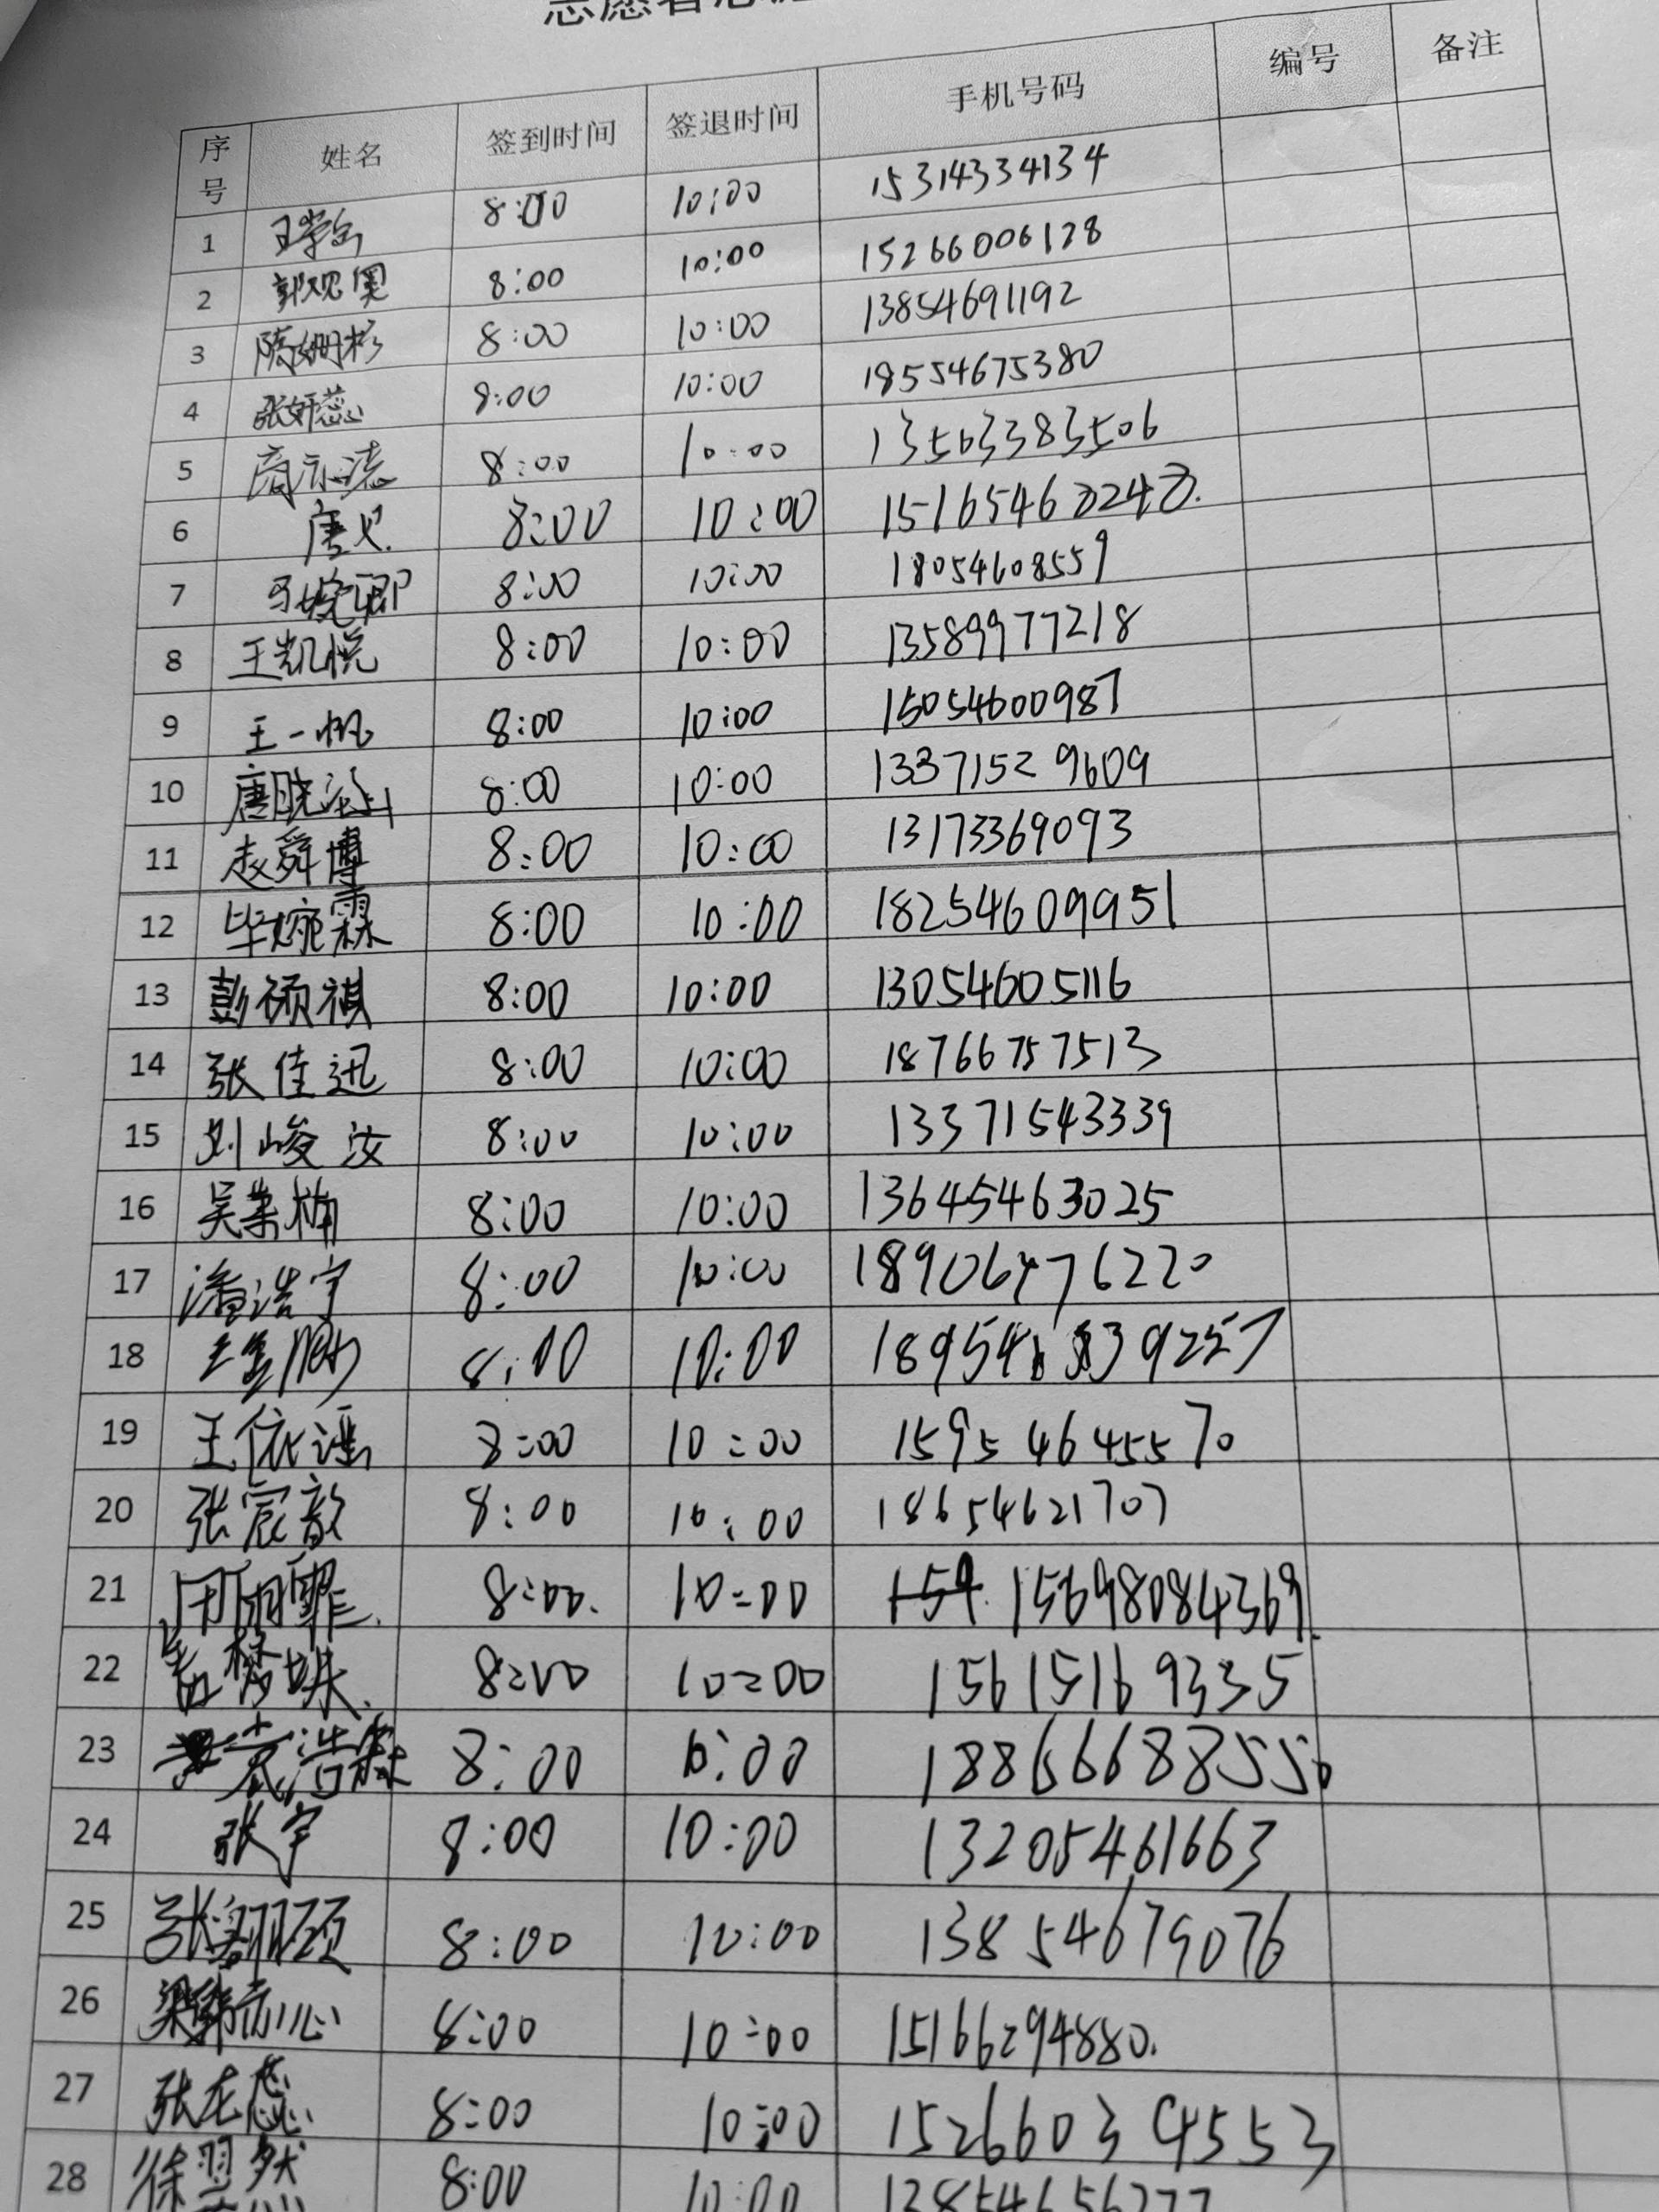 序号 姓名 签到时间 签退时间 手机号码 编号 备注
1 8:00 10:00 15314334134
2 8:00 10:00 15266006128
3 陈姗杉 8:00 10:00 13854691192
4 张妍蕊 8:00 10:00 18554675380
5 8:00 10:00 13563383506
6 8:00 10:00
7 马婉卿 8:00 10:00 18054608559
8 王凯悦 8:00 10:00 13589977218
9 王一帆 8:00 10:00 15054600987
10 8:00 10:00 13371529609
11 赵舜博 8:00 10:00 13173369093
12 毕婉霖 8:00 10:00 18254609951
13 彭硕祺 8:00 10:00 13054605116
14 张佳迅 8:00 10:00 18766757513
15 刘峻汝 8:00 10:00 13371543339
16 8:00 10:00 13645463025
17 潘浩宇 8:00 10:00 18906476220
18 8:00 10:00
19 王依谣 8:00 10:00 15954645570
20 张宸歆 8:00 10:00 18654621707
21 8:00 10:00 15698084369
22 8:00 10:00 15615169335
23 8:00 10:00 18866688550
24 张宇 8:00 10:00 13205461663
25 8:00 10:00 13854679076
26 8:00 10:00 15166294880.
27 8:00 10:00 15266034553
28 徐翌然 8:00 10:00 13854656277